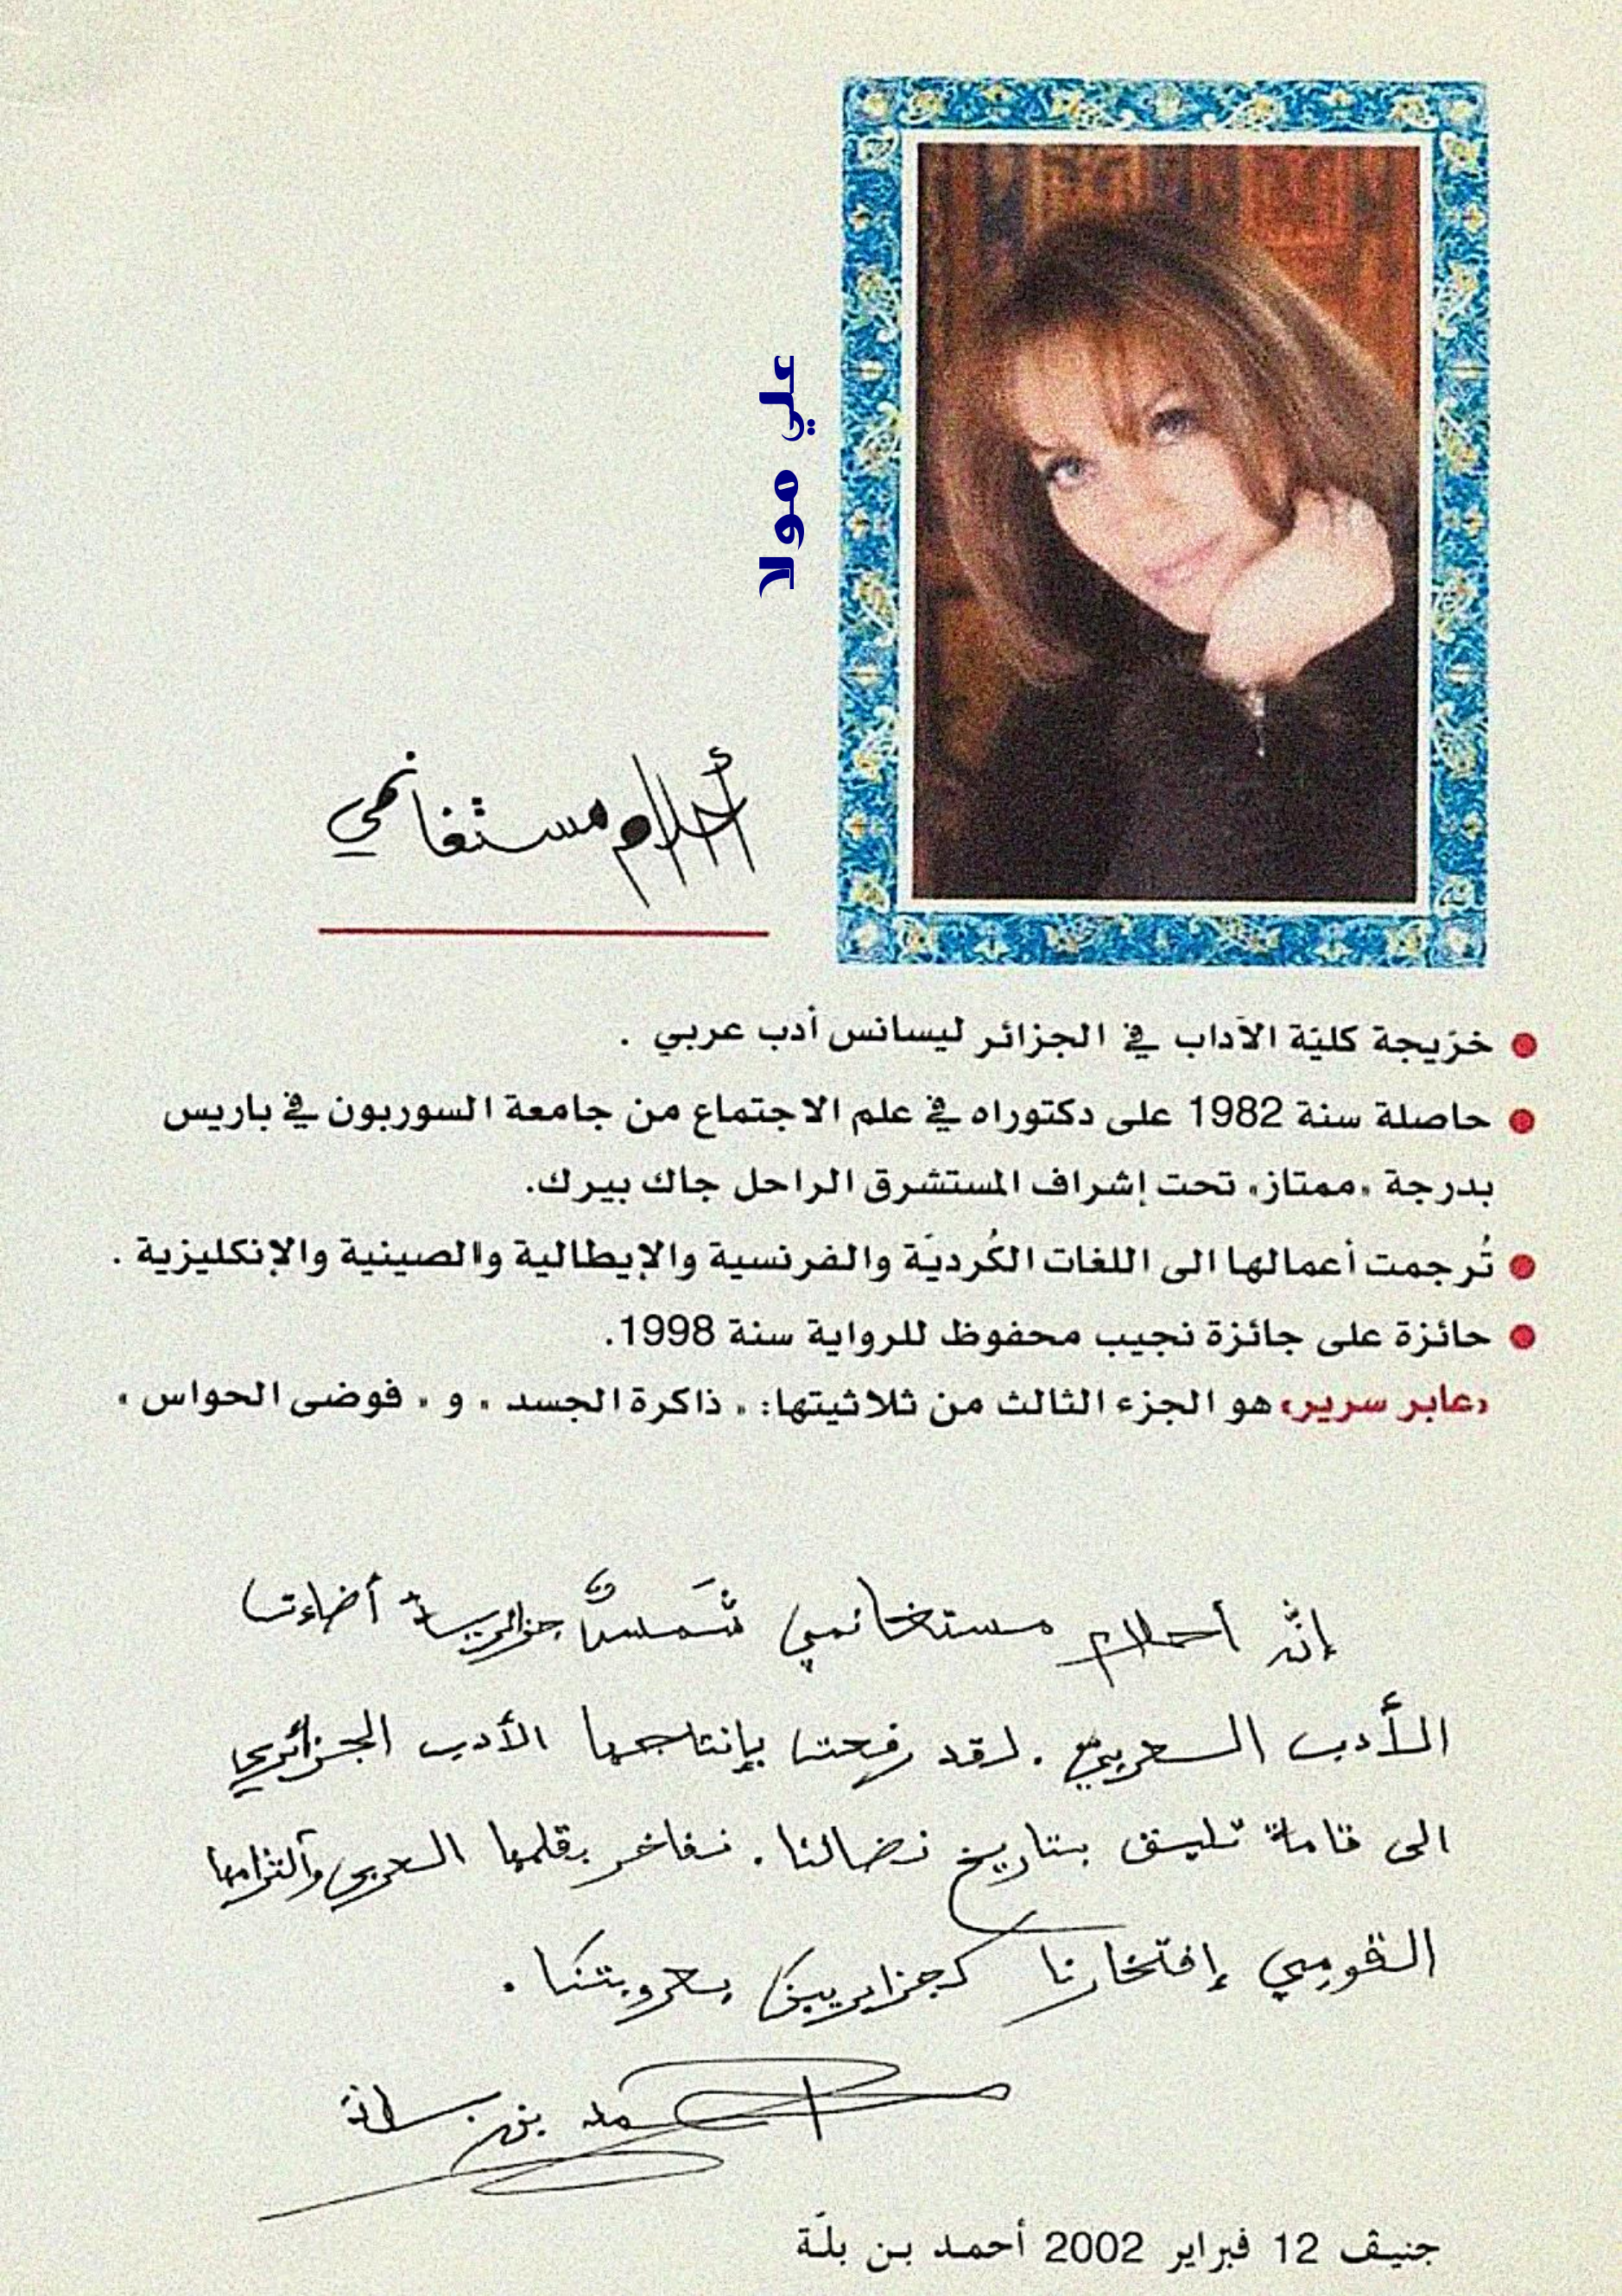 علي مولا
أحلام مستغانمي
خرّيجة كليّة الآداب في الجزائر ليسانس أدب عربي .
حاصلة سنة 1982 على دكتوراه في علم الاجتماع من جامعة السوربون في باريس
بدرجة «ممتاز» تحت إشراف المستشرق الراحل جاك بيرك.
تُرجمت أعمالها الى اللغات الكُرديّة والفرنسية والإيطالية والصينية والإنكليزية .
حائزة على جائزة نجيب محفوظ للرواية سنة 1998.
«عابر سرير» هو الجزء الثالث من ثلاثيتها: « ذاكرة الجسد » و « فوضى الحواس »
إنّ أحلام مستغانمي شَمسٌ جزائرية أضاءت
الأدب العربيّ . لقد رفعت بإنتاجها الأدب الجزائري
الى قامة تليق بتاريخ نضالنا . نفاخر بقلمها العربي وآلتزامها
القومي إفتخارنا كجزائريين بعروبتنا .
أحمد بن بلة
جنيف 12 فبراير 2002 أحمد بن بلّة